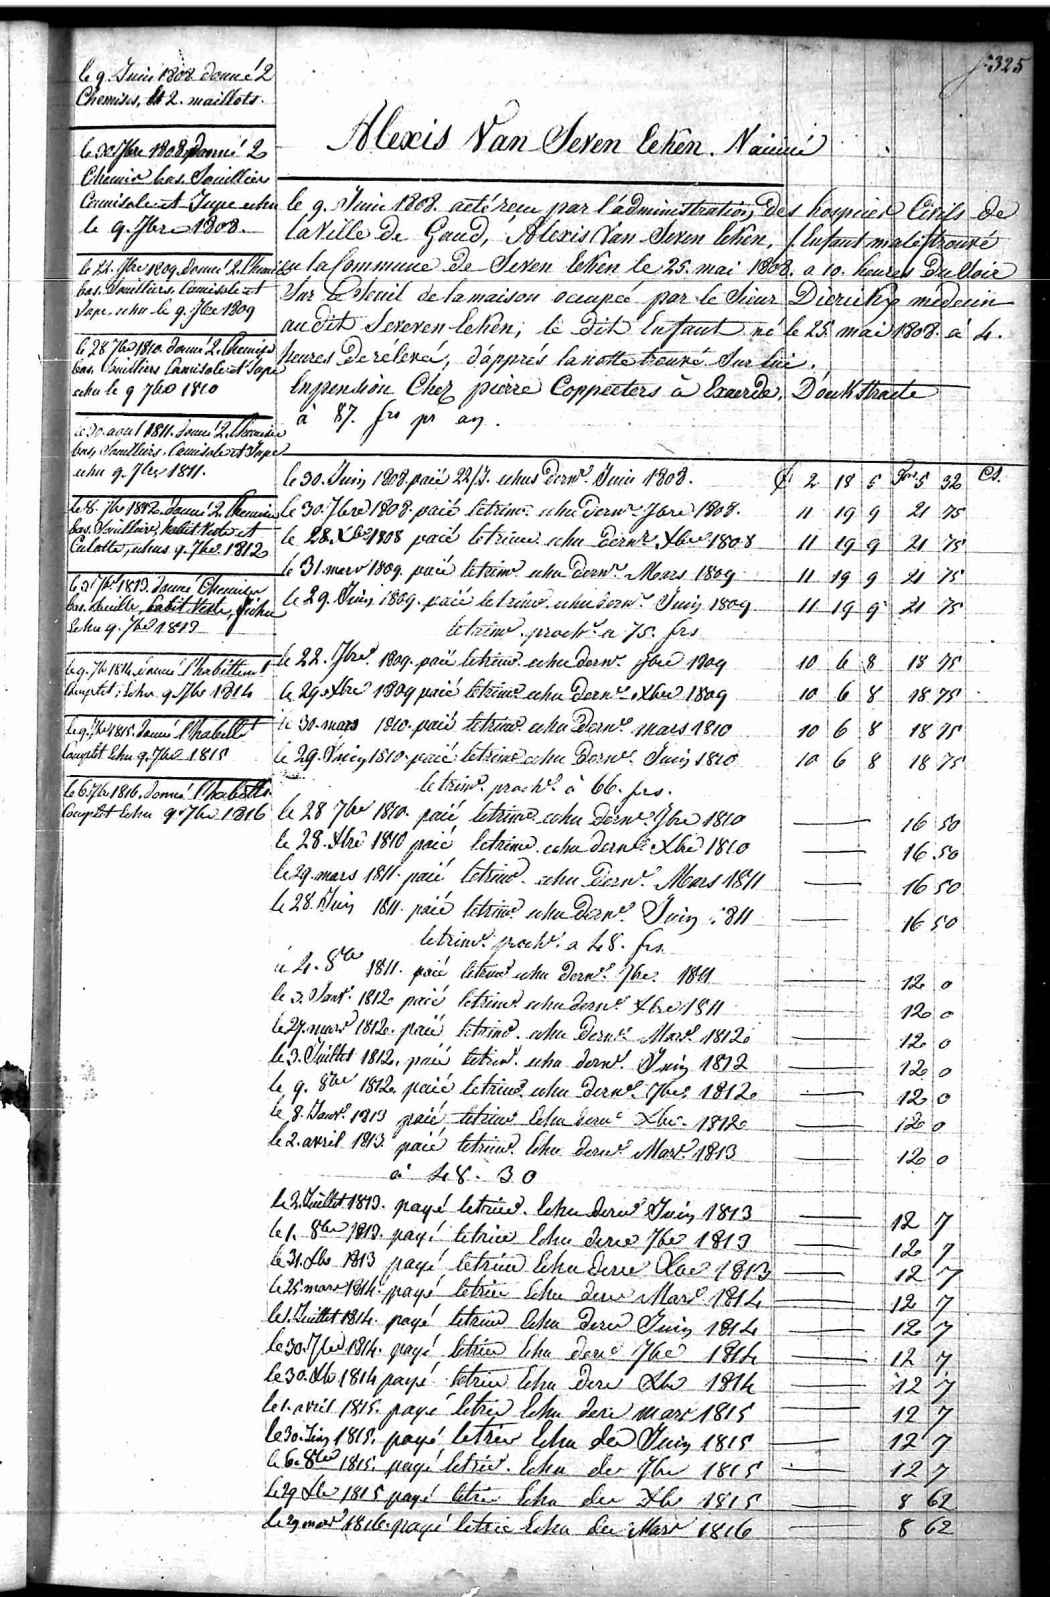 f. 325
le 9. Juin 1808 donné 2
Chemises, et 2. maillots.
le 30 7bre 1808 donné 2
Chemis bas. Souilliers
Camisole et Jupe echu
le 9. 7bre 1808.
le 22. 7bre 1809. donné 2. Chemis
bas. Souilliers. Camisole et
Jupe echu le 9. 7bre 1809
le 28 7bre 1810. donné 2. Chemises
bas. Souilliers Camisole et Jupe
echu le 9 7bre 1810
le 30. aout 1811. donné 2. Chemises
bas, Souilliers. Camisole et Jupe
echu 9. 7bre 1811.
le 8. 7bre 1812. donné 2. Chemises
bas. Souilliers, habit Veste et
Culotte, echus 9. 7bre 1812
le 3 7bre 1813. donné Chemises
bas. Soulle, habit Veste,
Echu 9. 7bre 1813
le 9. 7b 1814. donné l'habillemt
Complet; Echu 9. 7bre 1814
le 9. 7bre 1815. donné l'habillt
Complet Echu 9. 7bre 1815
le 6. 7bre 1816. donné l'habillt
Complet Echu 9. 7bre 1816
Alexis Van Seven Eeken.
le 9. Juin 1808. acté reçu par l'administration, des hospices Civils de
la Ville de Gand, Alexis Van Seven Eeken, (Enfant male) trouvé
en la Commune de Seven Eeken le 25. mai 1808. a 10. heures du Soir
Sur le Seuil de la maison occupée par le Sieur médecin
au dit Seveven Eeken; le dit Enfant né le 25. mai 1808. à 4.
heures De rélevé, d'apprés la notte trouvé Sur lui.
En pension Chez pierre Coppeeters a Exaerde,
à 87. frs pr an.
le 30. Juin 1808. paié 22/J. echus dernr. Juin 1808. £ 2 18 5 Frs 5 32 Cs.
le 30. 7bre 1808. paié le trimr. echu dernr. 7bre 1808. 11 19 9 21 75
le 28. Xbre 1808 paié le trimr. echu dernr. Xbre 1808 11 19 9 21 75
le 31. mars 1809. paié le trimr. echu dernr. Mars 1809 11 19 9 21 75
le 29. Juin 1809. paié le trimr. echu dernr. Juin 1809 11 19 9 21 75
le trimr. prochr. a 75. frs
le 22. 7bre. 1809. paié le trimr. echu dernr. 7bre 1809 10 6 8 18 75
le 29. Xbre 1809 paié le trimr. echu dernr. Xbre 1809 10 6 8 18 75
le 30. mars 1810. paié le trimr. echu dernr. mars 1810 10 6 8 18 75
le 29. Juin 1810. paié le trimr. echu dernr. Juin 1810 10 6 8 18 75
le trimr. prochr. à 66. frs.
le 28 7bre 1810. paié le trimr. echu dernr. 7bre 1810 — 16 50
le 28. Xbre 1810 paié le trimr. echu dernr. Xbre 1810 — 16 50
le 29. mars 1811. paié le trimr. echu dernr. Mars 1811 — 16 50
le 28. Juin 1811. paié le trimr. echu dernr. Juin 1811 — 16 50
le trimr. prochr. a 48. frs.
le 4. 8bre 1811. paié le trimr. echu dernr. 7bre. 1811 — 12 0
le 3. Janr. 1812 paié le trimr. echu dernr. Xbre 1811 — 12 0
le 27. mars 1812. paié le trimr. echu dernr. Mars. 1812 — 12 0
le 3. Juillet 1812. paié le trimr. echu dernr. Juin 1812 — 12 0
le 9. 8bre 1812. paié le trimr. echu dernr. 7bre. 1812 — 12 0
le 8. Janr. 1813 paié le trimr. Echu dernr Xbre. 1812 — 12 0
le 2. avril 1813. paié le trimr. Echu dernr. Mars. 1813 — 12 0
à 48. 30
le 2. Juillet 1813. payé le trim. Echu dernr Juin 1813 — 12 7
le 1. 8bre 1813. payé le trim Echu dernr 7bre 1813 — 12 7
le 31. Xbre 1813 payé le trim Echu dernr Xbre 1813 — 12 7
le 25. mars 1814. payé le trim Echu dernr Mars 1814 — 12 7
le 1. Juillet 1814. payé le trim Echu dernr Juin 1814 — 12 7
le 30. 7bre 1814. payé le trim Echu dernr 7bre 1814 — 12 7
le 30. Xb 1814 payé le trim Echu dernr Xb 1814 — 12 7
le 1. avril 1815. payé le trim Echu dernr mars 1815 — 12 7
le 30. Juin 1815. payé le trim Echu der Juin 1815 — 12 7
le 6. 8bre 1815. payé le trim. Echu der 7bre 1815 — 12 7
le 29 Xbre 1815 payé le trim Echu der Xb 1815 — 8 62
le 29 mars 1816. payé le trim Echu der Mars 1816 — 8 62